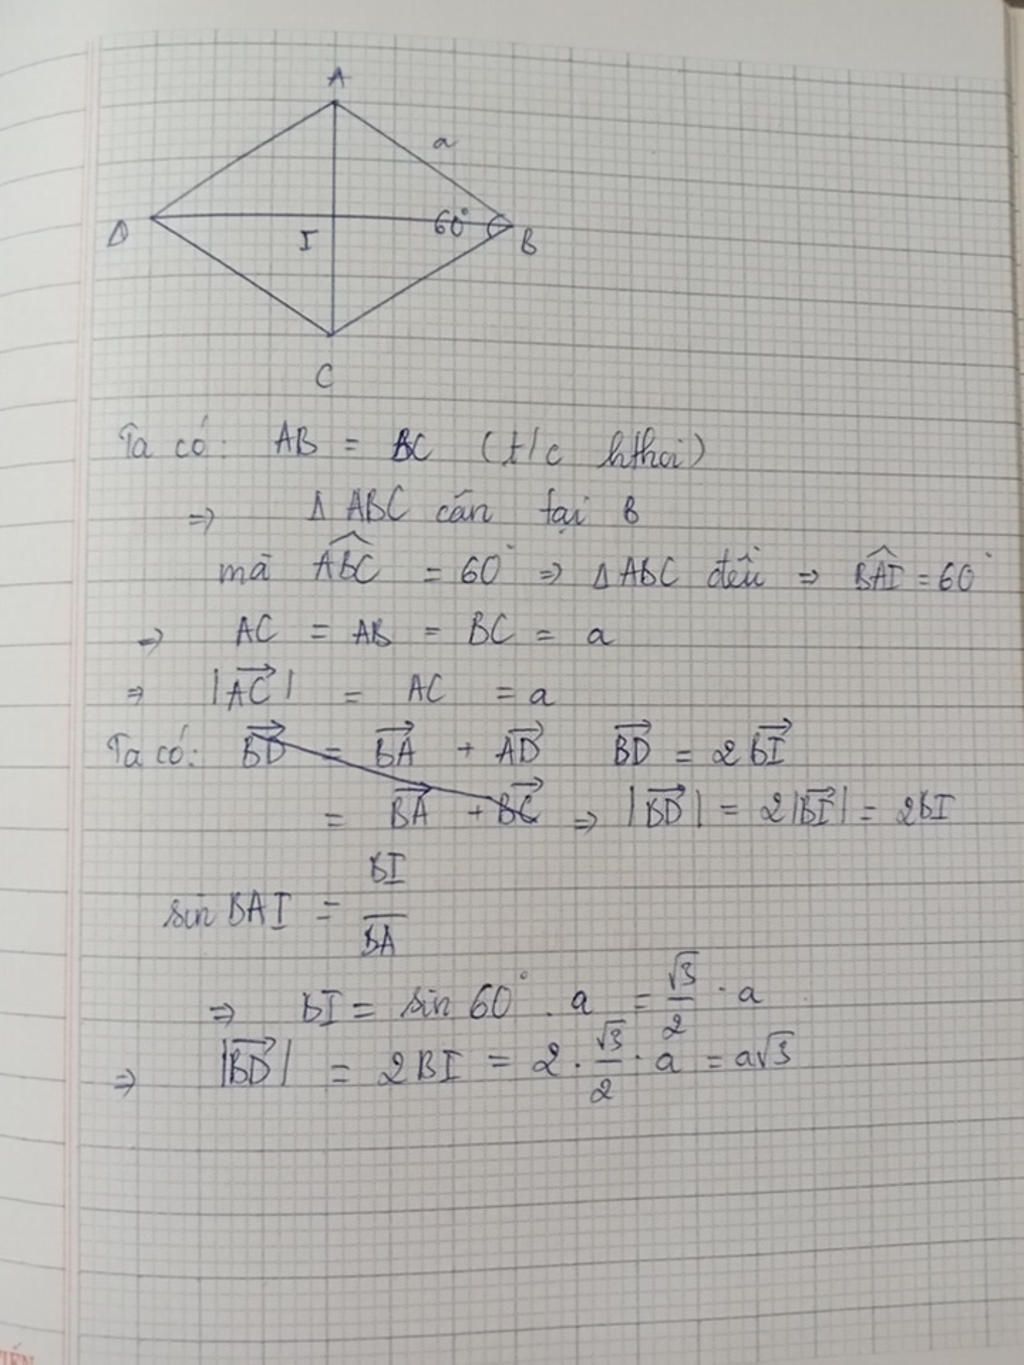 A
a
D
I
60°
B
C
Ta có: AB = BC (t/c hthoi)
=> Δ ABC cân tại B
mà \widehat{ABC} = 60° => Δ ABC đều => \widehat{BAI} = 60°
=> AC = AB = BC = a
=> |\overrightarrow{AC}| = AC = a
Ta có: \overrightarrow{BD} = \overrightarrow{BA} + \overrightarrow{AD} \overrightarrow{BD} = 2\overrightarrow{BI}
= \overrightarrow{BA} + \overrightarrow{BC} => |\overrightarrow{BD}| = 2|\overrightarrow{BI}| = 2BI
sin BAI = \frac{BI}{BA}
=> BI = sin 60° . a = \frac{\sqrt{3}}{2} . a
=> |\overrightarrow{BD}| = 2BI = 2 . \frac{\sqrt{3}}{2} . a = a\sqrt{3}